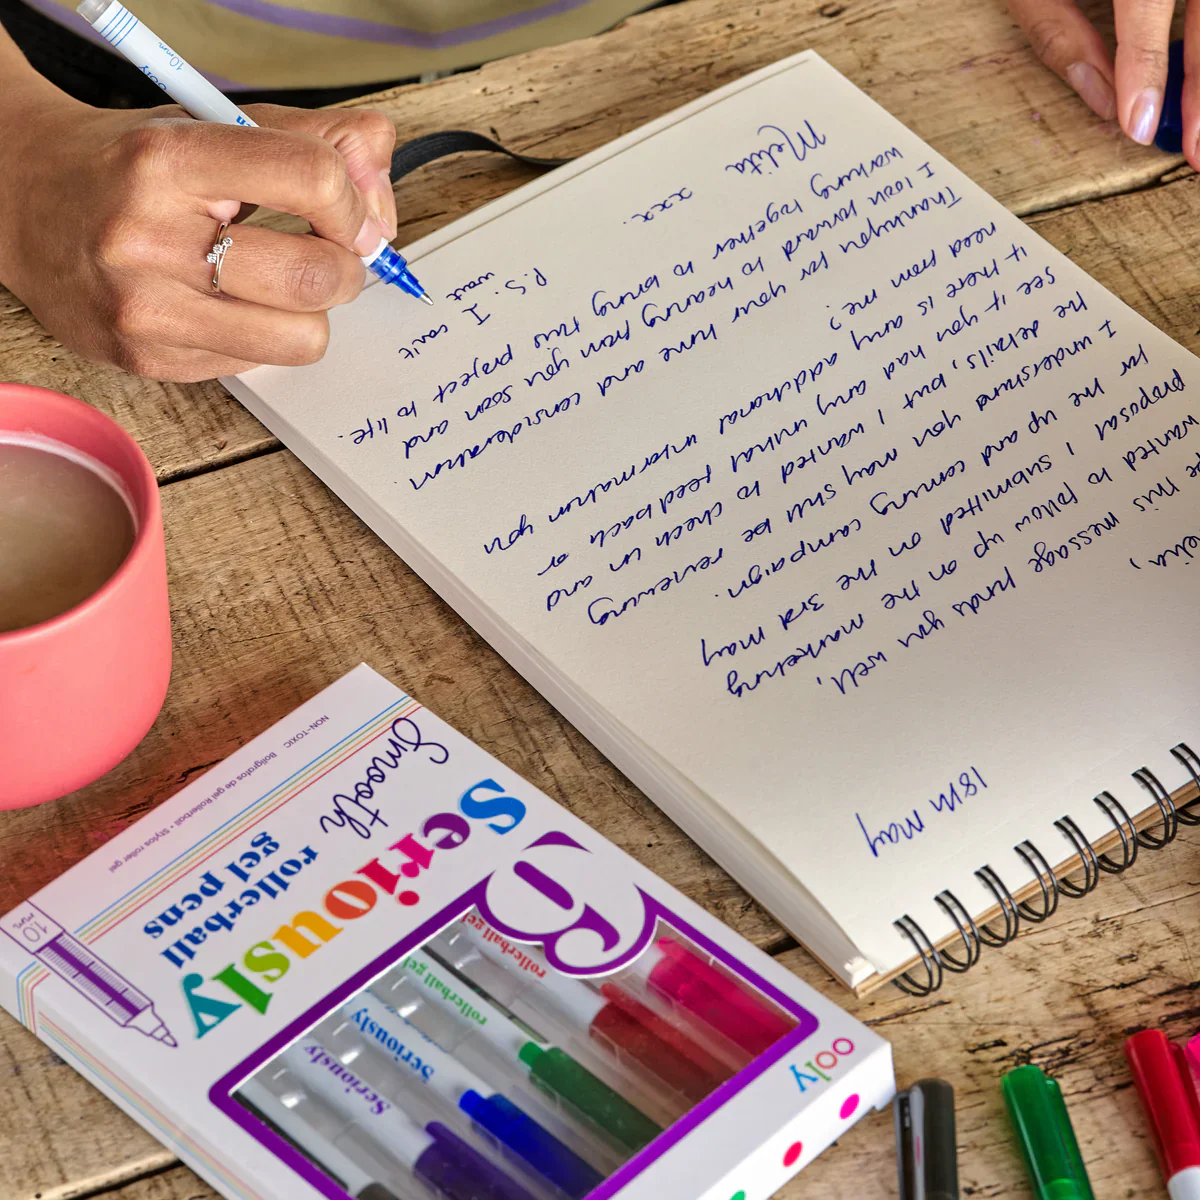 18th May
this message finds you well,
wanted to follow up on the marketing
proposal I submitted on the 3rd May
for the up and coming campaign.
I understand you may still be reviewing
the details, but I wanted to check in and
see if you had any initial feedback or
if there is any additional information you
need from me?
Thankyou for your time and consideration.
I look forward to hearing from you soon and
working together to bring this project to life.
xxx.
Melita
P.S. I can't
want
Smooth
Seriously
rollerball
gel pens
1.0
mm
NON-TOXIC Bolígrafos de gel Rollerball • Stylos roller gel
6
ooly
rollerball gel
rollerball gel
Seriously
Seriously
10mm
ooly